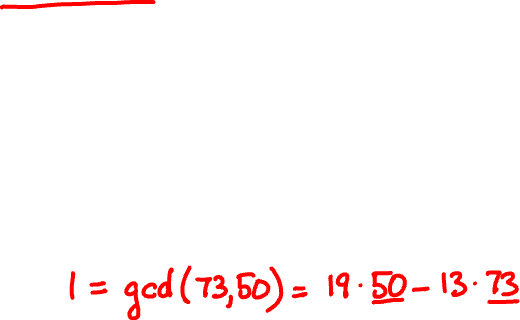 1 = gcd(73,50) = 19·50 - 13·73